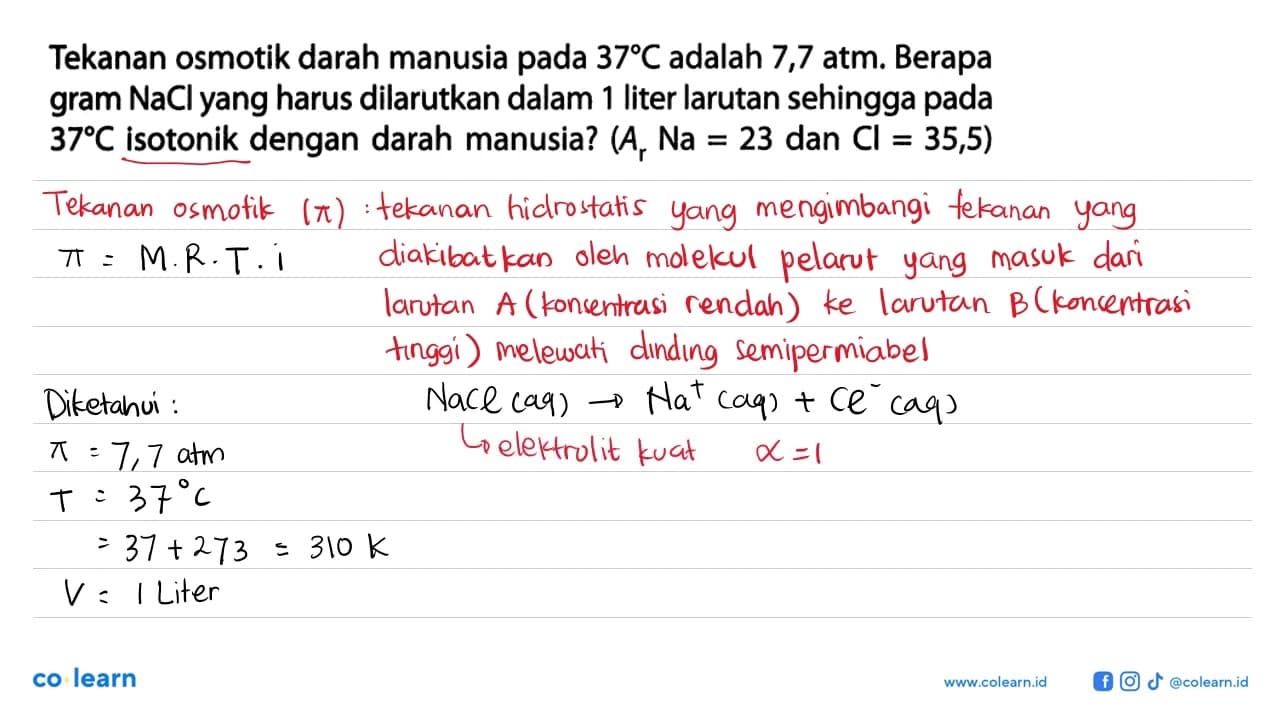 Tekanan osmotik darah manusia pada 37°C adalah 7,7 atm. Berapa
gram NaCl yang harus dilarutkan dalam 1 liter larutan sehingga pada
37°C isotonik dengan darah manusia? (Aᵣ Na = 23 dan Cl = 35,5)
Tekanan osmotik (π) : tekanan hidrostatis yang mengimbangi tekanan yang
π = M.R.T.i diakibatkan oleh molekul pelarut yang masuk dari
larutan A (konsentrasi rendah) ke larutan B (konsentrasi
tinggi) melewati dinding semipermiabel
Diketahui : NaCl (aq) → Na⁺ (aq) + Cl⁻ (aq)
π = 7,7 atm ↳ elektrolit kuat α = 1
T = 37°C
= 37 + 273 = 310 K
V = 1 Liter
co learn www.colearn.id @colearn.id